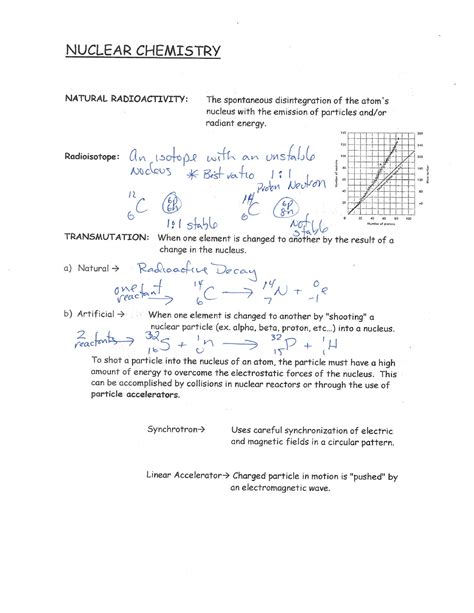 NUCLEAR CHEMISTRY
NATURAL RADIOACTIVITY: The spontaneous disintegration of the atom's
nucleus with the emission of particles and/or
radiant energy.
Radioisotope: An isotope with an unstable
Nucleus * Best ratio 1:1
Proton Neutron
12 6 C 6p 6n 14 6 C 6p 8n
1:1 stable Not stable
Number of protons
TRANSMUTATION: When one element is changed to another by the result of a
change in the nucleus.
a) Natural → Radioactive Decay
one reactant → 14 6 C → 14 7 N + 0 -1 e
b) Artificial → When one element is changed to another by "shooting" a
nuclear particle (ex. alpha, beta, proton, etc...) into a nucleus.
2 reactants → 32 16 S + 1 0 n → 32 15 P + 1 1 H
To shot a particle into the nucleus of an atom, the particle must have a high
amount of energy to overcome the electrostatic forces of the nucleus. This
can be accomplished by collisions in nuclear reactors or through the use of
particle accelerators.
Synchrotron→ Uses careful synchronization of electric
and magnetic fields in a circular pattern.
Linear Accelerator→ Charged particle in motion is "pushed" by
an electromagnetic wave.